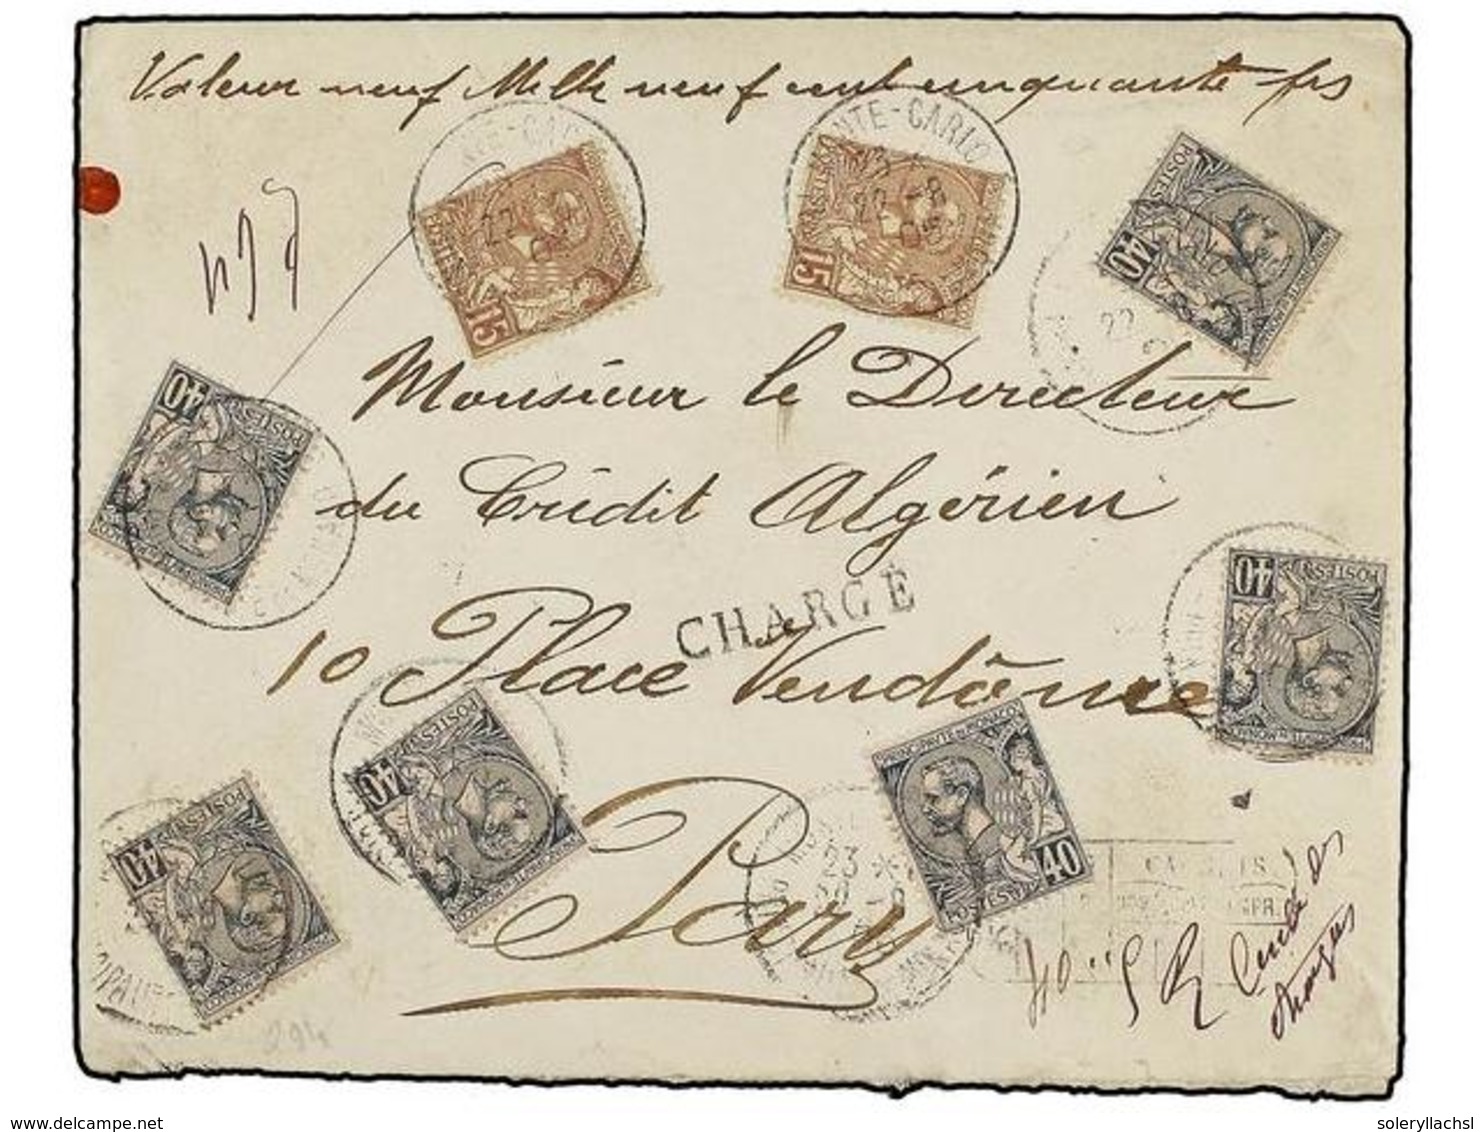 Valeur neuf Mille neuf cent cinquante frs
NTE-CARLO
22
15
POSTES
MONTE-CARLO
22
15
POSTES
40
22
POSTES
40
POSTES
Monsieur le Directeur
du Crédit Algérien
CHARGÉ
10 Place Vendôme
Paris
40
POSTES
40
POSTES
40
POSTES
PRINCIPAUTÉ DE MONACO
40
POSTES
23
Cercle des
Etrangers
294
delcampe.net
soleryllachsl